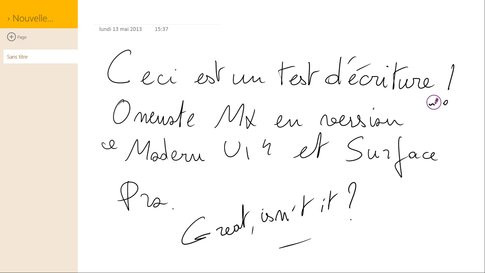 Nouvelle...
Page
Sans titre
lundi 13 mai 2013 15:37
Ceci est un test d'écriture !
Onenote MX en version
"Modern UI" et Surface
Pro.
Great, isn't it ?